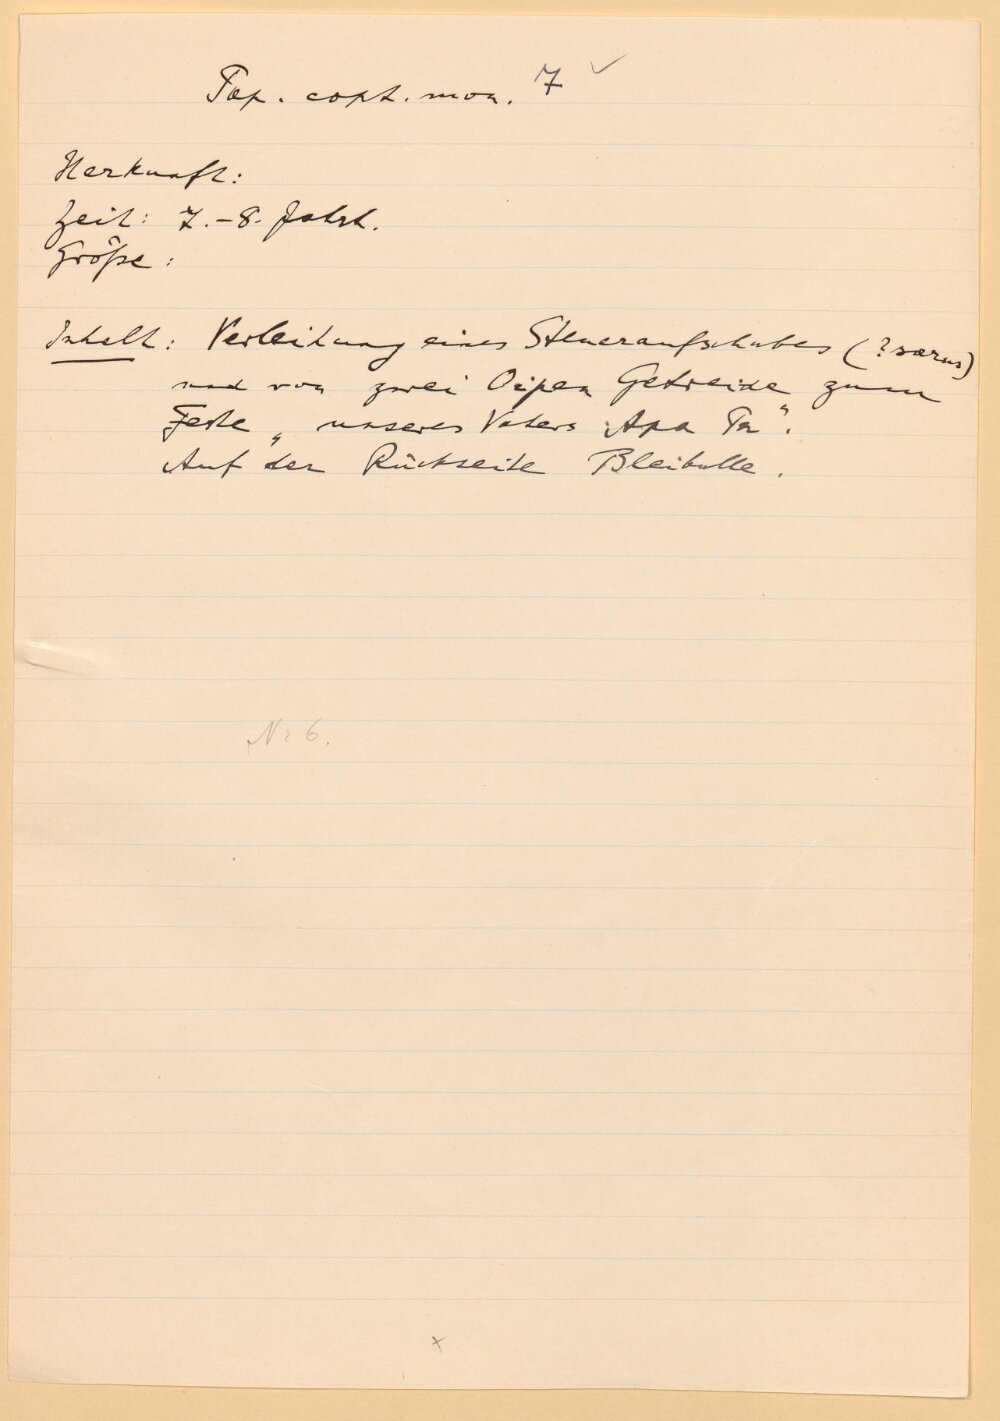 Pap. copt. mon. 7 ✓
Herkunft:
Zeit: 7.-8. Jahrh.
Größe:
Inhalt: Verleihung eines Steueraufschubes (?
und von zwei Oipen Getreide zum
Feste „unseres Vaters Apa
Auf der Rückseite Bleibulle.
Nr 6.
x